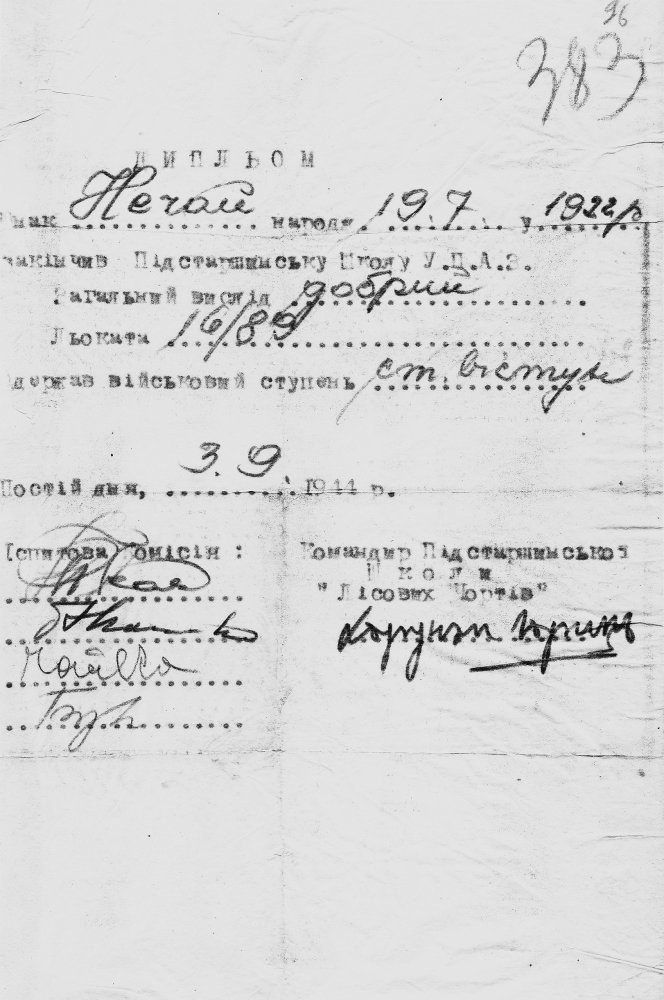 96
383
ДИПЛЬОМ
Юнак Нечай народж. 19 7 у 1922 р
закінчив Підстаршинську Школу У.Ц.А.З.
Загальний вислід добрий
Льоката 16/89
Одержав військовий ступень ст. вістун
Постій дня, 3. 9. 1944 р.
Іспитова Комісія : Командир Підстаршинської
Школи
"Лісових Чортів"
Хорунжи
Чайка